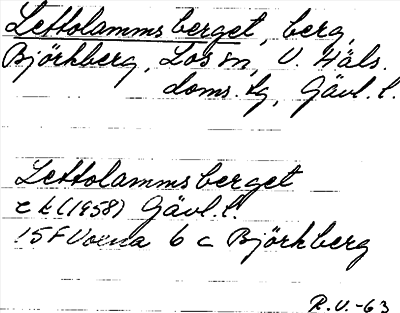 Lettolammsberget, berg,
Björkberg, Los sn, V. Häls.
doms. tg, Gävl. l.
Lettolammsberget
e k (1958) Gävl. l.
15F Voxna 6 c Björkberg
R.V.-63